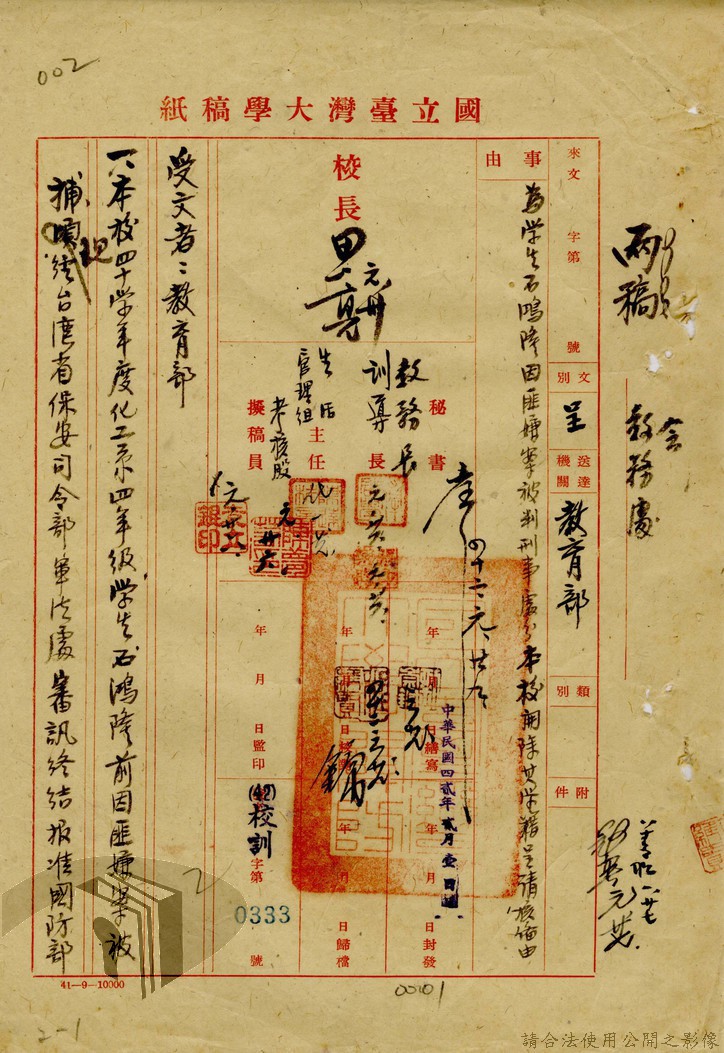 002
國立臺灣大學稿紙
兩稿
會
教務處
來文 字第 號
文別 呈
送達機關 教育部
類別
附件
事由
為學生石鴻隆因匪嫌案被判刑事處分本校開除其學籍呈請核備由
校長
秘書
教務長
訓導長
生活管理組主任
擬稿員
四十二、元、廿九
年 月 日繕寫
年 月 日校對
年 月 日監印
年 月 日封發
年 月 日歸檔
中華民國四貳年貳月壹日
(42)校訓字第 0333 號
受文者:教育部
一、本校四十學年度化工系四年級學生石鴻隆前因匪嫌案被
捕現經台灣省保安司令部軍法處審訊終結報准國防部
41—9—10000
00101
2-1
請合法使用公開之影像